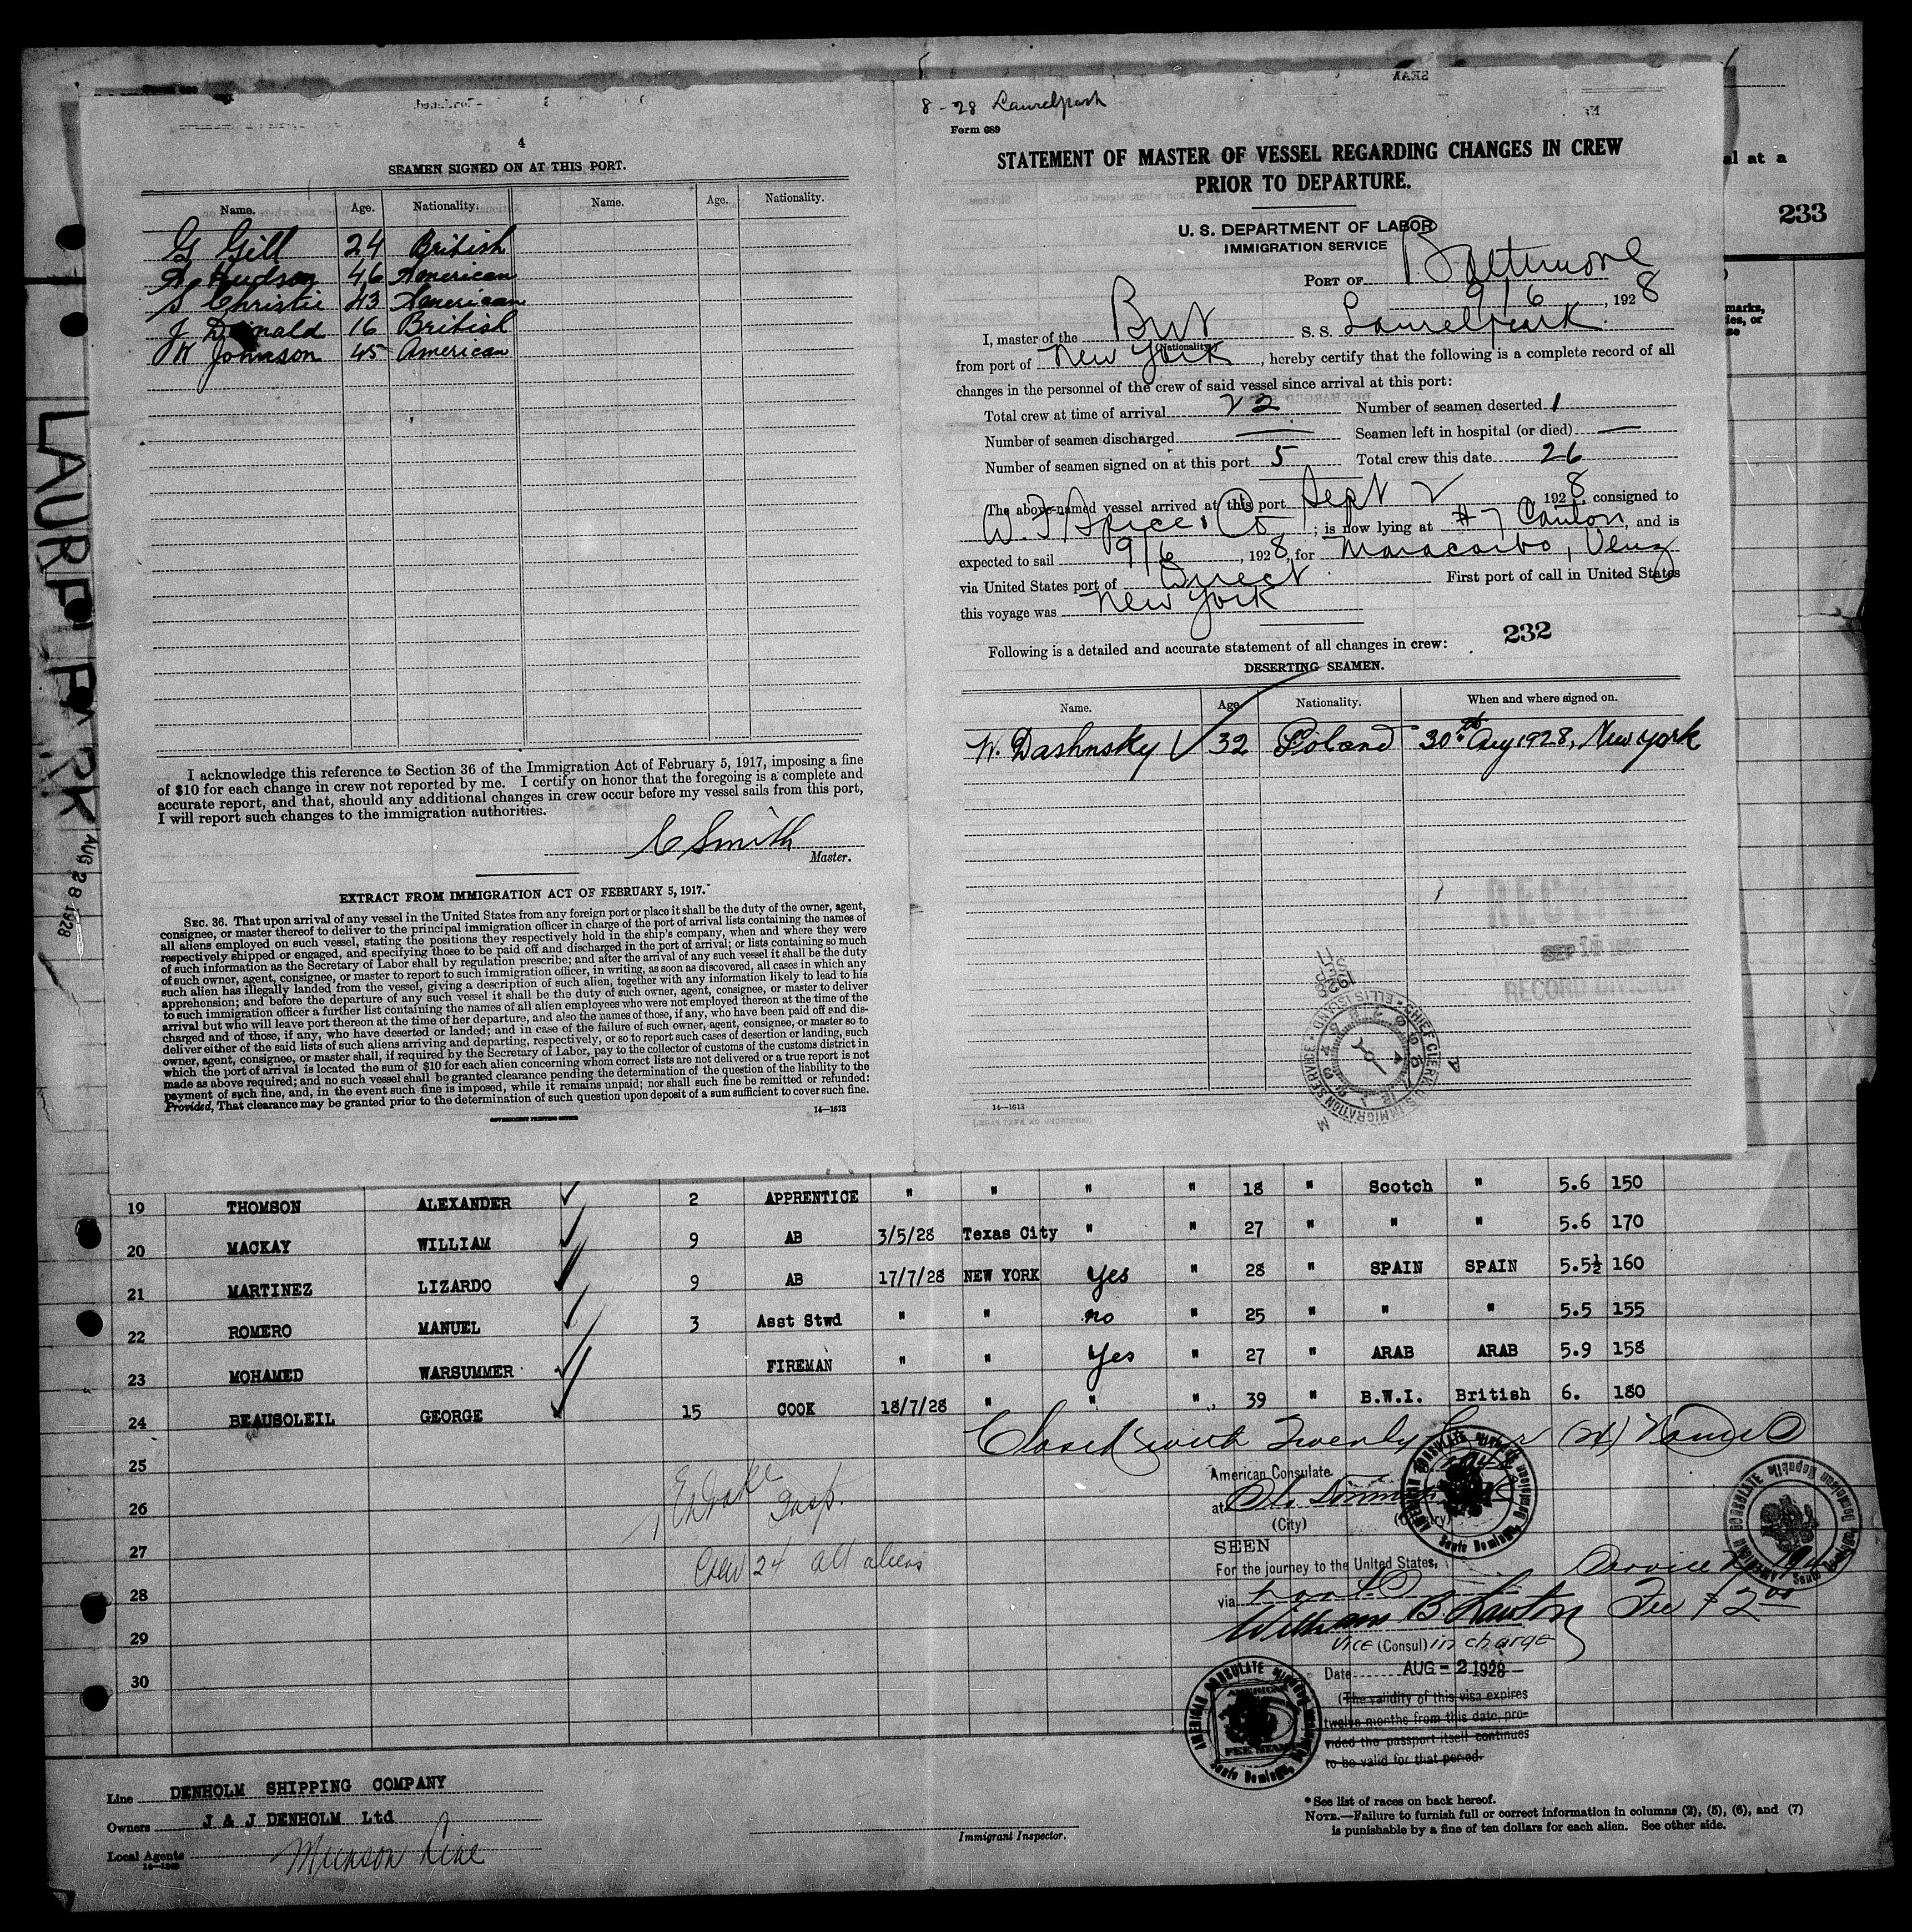 4
SEAMEN SIGNED ON AT THIS PORT.
Name. Age. Nationality. Name. Age. Nationality.
G Gill 24 British
A Hudson 46 American
S Christie 43 American
J Donald 16 British
W Johnson 45 American
I acknowledge this reference to Section 36 of the Immigration Act of February 5, 1917, imposing a fine
of $10 for each change in crew not reported by me. I certify on honor that the foregoing is a complete and
accurate report, and that, should any additional changes in crew occur before my vessel sails from this port,
I will report such changes to the immigration authorities.
C Smith
Master.
EXTRACT FROM IMMIGRATION ACT OF FEBRUARY 5, 1917.
SEC. 36. That upon arrival of any vessel in the United States from any foreign port or place it shall be the duty of the owner, agent,
consignee, or master thereof to deliver to the principal immigration officer in charge of the port of arrival lists containing the names of
all aliens employed on such vessel, stating the positions they respectively hold in the ship's company, when and where they were
respectively shipped or engaged, and specifying those to be paid off and discharged in the port of arrival; or lists containing so much
of such information as the Secretary of Labor shall by regulation prescribe; and after the arrival of any such vessel it shall be the duty
of such owner, agent, consignee, or master to report to such immigration officer, in writing, as soon as discovered, all cases in which any
such alien has illegally landed from the vessel, giving a description of such alien, together with any information likely to lead to his
apprehension; and before the departure of any such vessel it shall be the duty of such owner, agent, consignee, or master to deliver
to such immigration officer a further list containing the names of all alien employees who were not employed thereon at the time of the
arrival but who will leave port thereon at the time of her departure, and also the names of those, if any, who have been paid off and dis-
charged and of those, if any, who have deserted or landed; and in case of the failure of such owner, agent, consignee, or master so to
deliver either of the said lists of such aliens arriving and departing, respectively, or so to report such cases of desertion or landing, such
owner, agent, consignee, or master shall, if required by the Secretary of Labor, pay to the collector of customs of the customs district in
which the port of arrival is located the sum of $10 for each alien concerning whom correct lists are not delivered or a true report is not
made as above required; and no such vessel shall be granted clearance pending the determination of the question of the liability to the
payment of such fine, and, in the event such fine is imposed, while it remains unpaid; nor shall such fine be remitted or refunded:
Provided, That clearance may be granted prior to the determination of such question upon deposit of a sum sufficient to cover such fine.
GOVERNMENT PRINTING OFFICE 14—1613
8-28 Laurelpark
Form 689
STATEMENT OF MASTER OF VESSEL REGARDING CHANGES IN CREW
PRIOR TO DEPARTURE.
U. S. DEPARTMENT OF LABOR
IMMIGRATION SERVICE
PORT OF Baltimore
9/6, 1928
I, master of the Brit S. S. Laurelpark
(Nationality)
from port of New York, hereby certify that the following is a complete record of all
changes in the personnel of the crew of said vessel since arrival at this port:
Total crew at time of arrival 22 Number of seamen deserted 1
Number of seamen discharged — Seamen left in hospital (or died) —
Number of seamen signed on at this port 5 Total crew this date 26
The above-named vessel arrived at this port Sept 2 1928, consigned to
W. F. Spice & Co; is now lying at #7 Canton, and is
expected to sail 9/6, 1928, for Maracaibo, Venz
via United States port of Direct First port of call in United States
this voyage was New York
232
Following is a detailed and accurate statement of all changes in crew:
DESERTING SEAMEN.
Name. Age. Nationality. When and where signed on.
W. Dashnsky 32 Poland 30th Aug 1928, New York
RECEIVED
SEP
RECORD DIVISION
SEP 1928
CHIEF CLERK U.S. IMMIGRATION SERVICE ELLIS ISLAND
14—1613
al at a
233
marks,
LAUREL PARK
AUG 28 1928
19 THOMSON ALEXANDER 2 APPRENTICE " " " " 18 " Scotch " 5.6 150
20 MACKAY WILLIAM 9 AB 3/5/28 Texas City " " 27 " " " 5.6 170
21 MARTINEZ LIZARDO 9 AB 17/7/28 NEW YORK Yes " 28 " SPAIN SPAIN 5.5½ 160
22 ROMERO MANUEL 3 Asst Stwd " " no " 25 " " " 5.5 155
23 MOHAMED WARSUMMER FIREMAN " " Yes " 27 " ARAB ARAB 5.9 158
24 BEAUSOLEIL GEORGE 15 COOK 18/7/28 " " " 39 " B.W.I. British 6. 180
Closed with Twenty four (24) Names
25
26
27
28
29
30
Insp.
Crew 24 all aliens
American Consulate
at Sto. Domingo
(City) (Country)
SEEN
For the journey to the United States,
via
William B. Lawton
Vice (Consul) in charge
Date AUG - 2 1928
(The validity of this visa expires
twelve months from this date, pro-
vided the passport itself continues
to be valid for that period.
Service No.
Fee $2.00
AMERICAN CONSULATE Santo Domingo, Dominican Republic
AMERICAN CONSULATE Santo Domingo, Dominican Republic
AMERICAN CONSULATE Santo Domingo
FEE STAMP
Line DENHOLM SHIPPING COMPANY
Owners J & J DENHOLM Ltd
Local Agents Munson Line
Immigrant Inspector.
* See list of races on back hereof.
NOTE.—Failure to furnish full or correct information in columns (2), (5), (6), and (7)
is punishable by a fine of ten dollars for each alien. See other side.